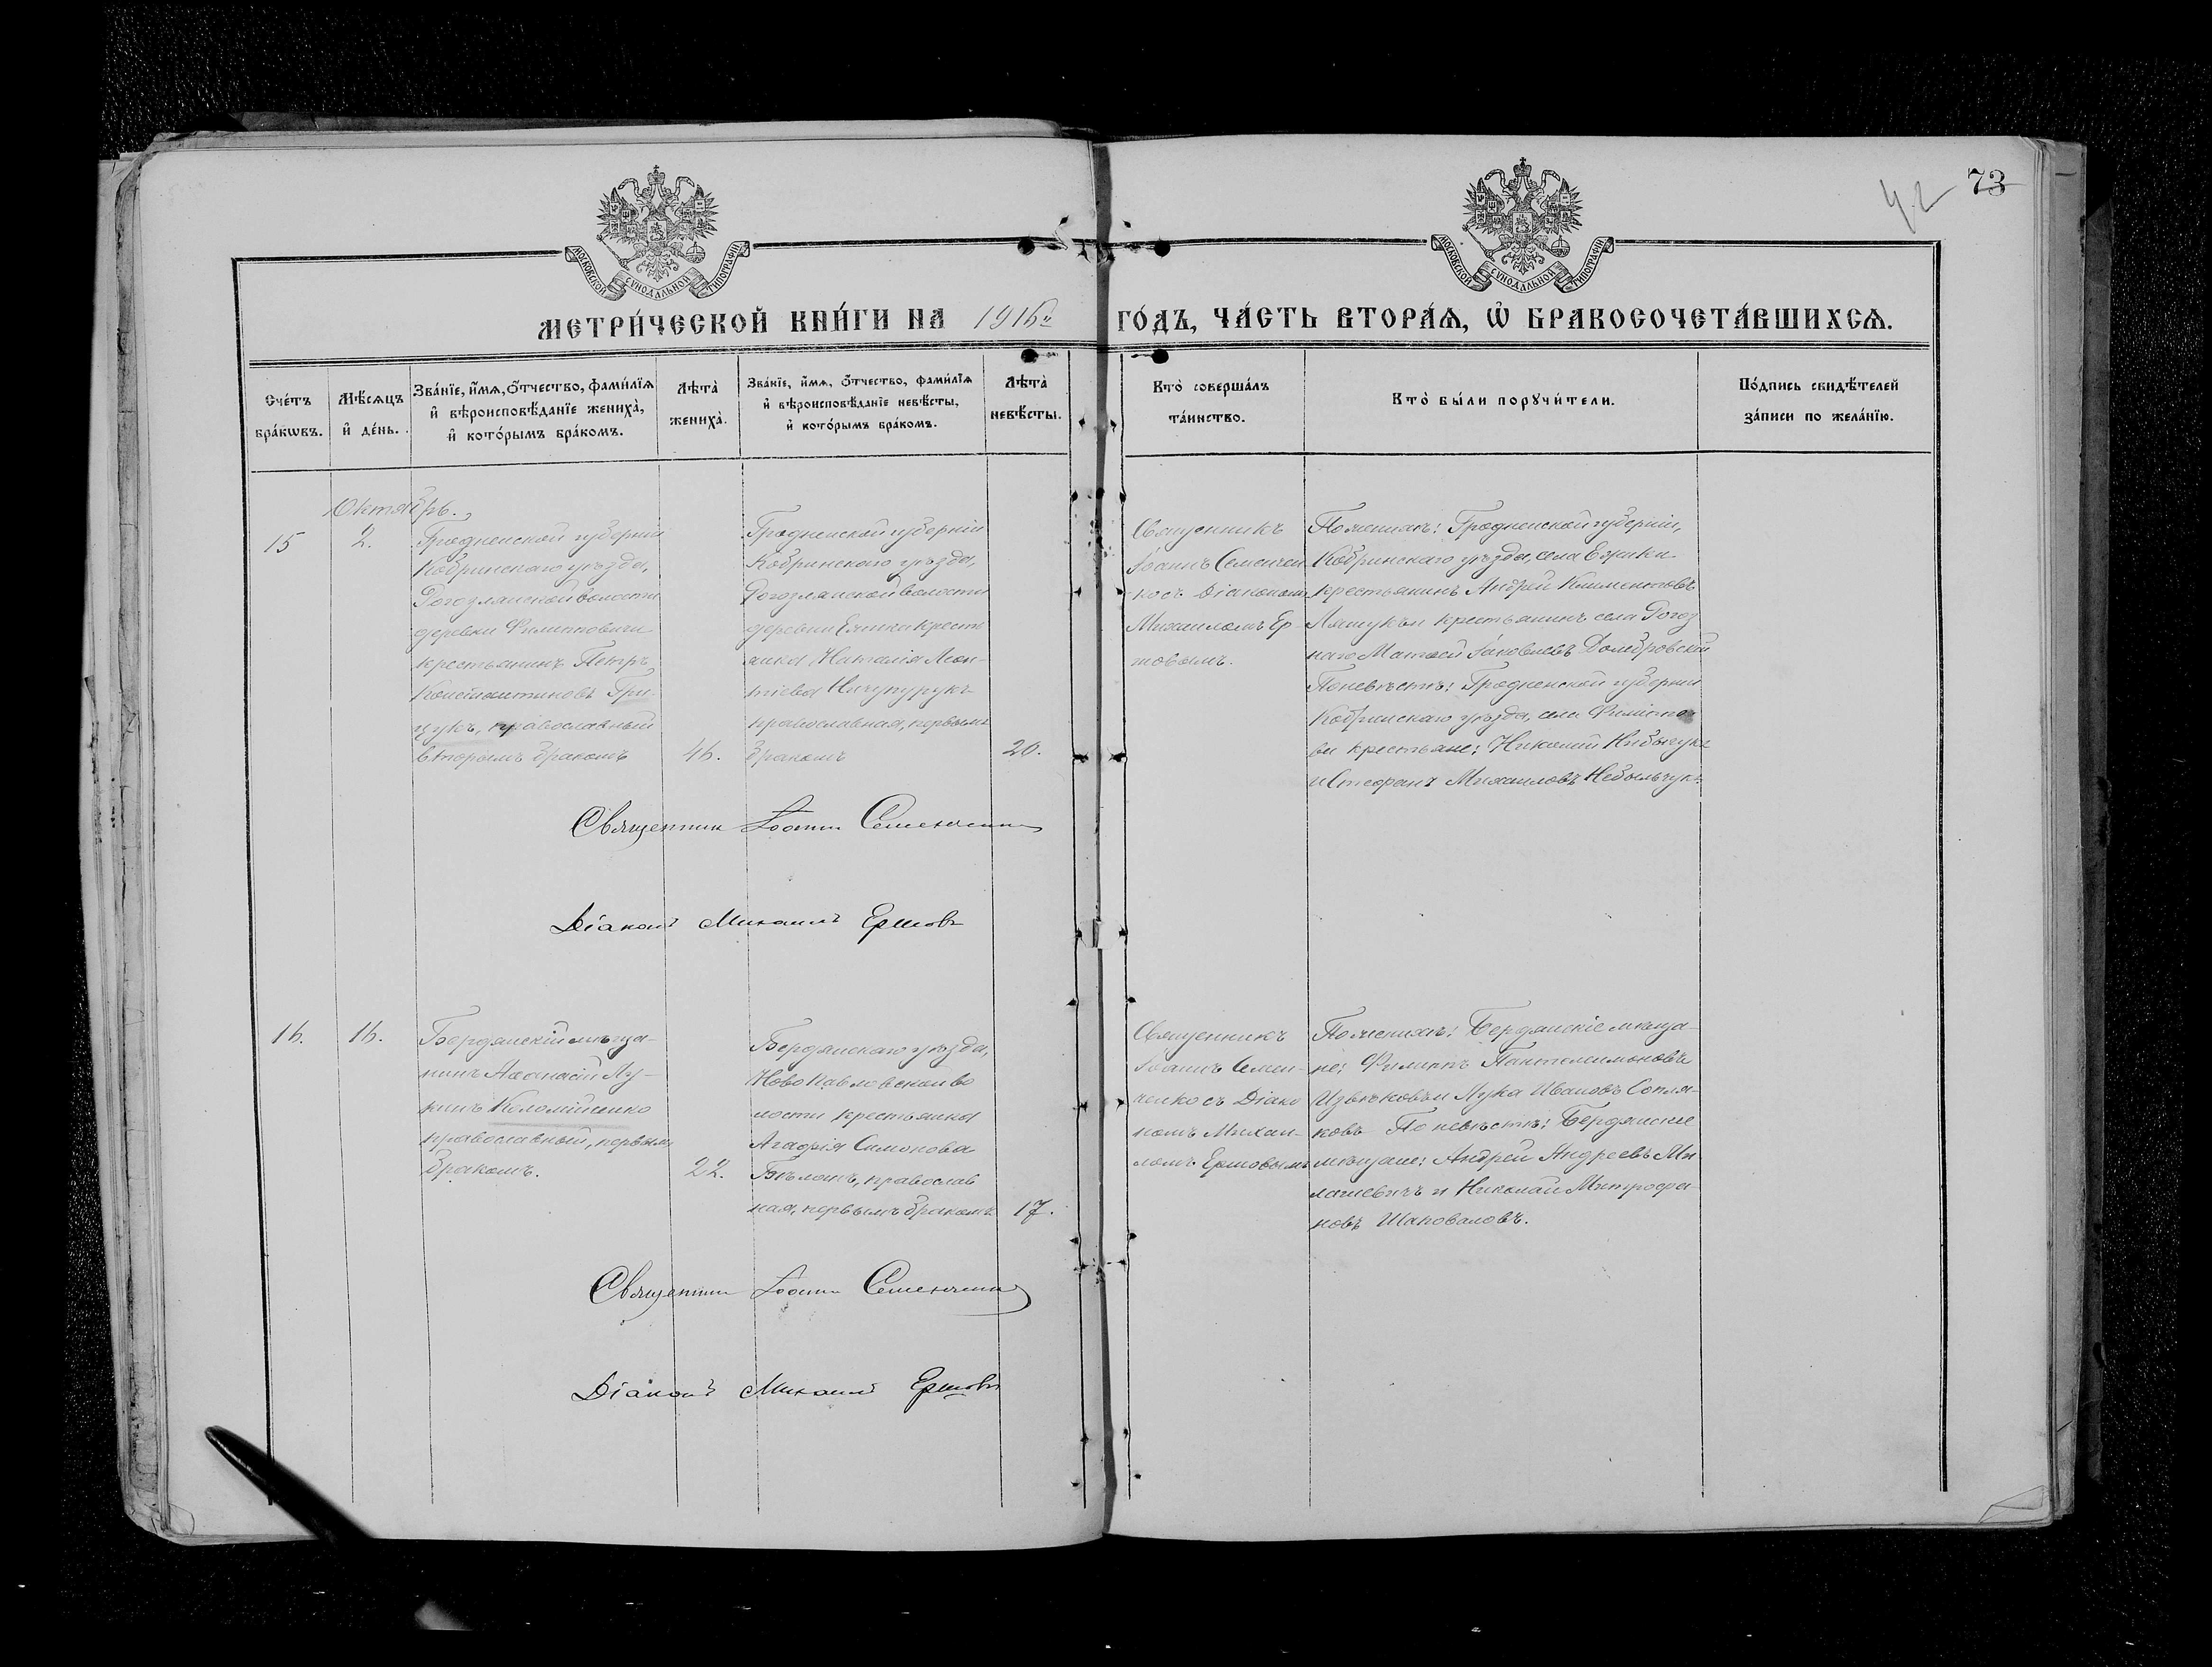 42 73
МОСКОВСКОЙ СѴНОДАЛЬНОЙ ТИПОГРАФІИ
МОСКОВСКОЙ СѴНОДАЛЬНОЙ ТИПОГРАФІИ
МЕТРИ́ЧЕСКОЙ КНИ́ГИ НА 1916й ГО́ДЪ, ЧА́СТЬ ВТОРА́Ѧ, Ѽ БРАКОСОЧЕТА́ВШИХСѦ.
Сче́тъ
бра́кѡвъ.
Мѣ́сѧцъ
и҆ де́нь.
Зва́нїе, и҆́мѧ, ѻ҆́тчество, фами́лїѧ
и҆ вѣроисповѣ́данїе жениха̀,
и҆ кото́рымъ бра́комъ.
Лѣта̀
жениха̀.
Зва́нїе, и҆́мѧ, ѻ҆́тчество, фами́лїѧ
и҆ вѣроисповѣ́данїе невѣ́сты,
и҆ кото́рымъ бра́комъ.
Лѣта̀
невѣ́сты.
Кто̀ соверша́лъ
та́инство.
Кто̀ бы́ли порꙋчи́тели.
По́дпись свидѣ́телей
за́писи по жела́нїю.
Октябрь.
15
2.
Гродненской губерніи
Кобринскаго уѣзда,
Рогознянской волости
деревни Филипповичи
крестьянинъ Петръ
Константиновъ Гри-
цукъ, православный
вторымъ бракомъ
46.
Гродненской губерніи
Кобринскаго уѣзда,
Рогознянской волости
деревни крестья
янка Наталія Леон-
тіева
православная, первымъ
бракомъ
20.
Священникъ
Іоаннъ Семенчен
ко съ Діакономъ
Михаиломъ Ер-
шовымъ.
По женихѣ: Гродненской губерніи,
Кобринскаго уѣзда, села
крестьянинъ Андрей Климентовъ
Ляшукъ и крестьянинъ села Рогоз
наго Матѳей Іаковлевъ Домбровскій
По невѣстѣ: Гродненской губерніи
Кобринскаго уѣзда, села Филиппо
ви крестьяне: Николай
и Стефанъ Михаиловъ Небыльчукъ.
Священник Іоанн Семенченко
Діаконъ Михаилъ Ершовъ
16.
16.
Бердянскій мѣща-
нинъ Аѳанасій Лу-
кинъ Коломійченко
православный, первымъ
бракомъ.
22.
Бердянскаго уѣзда,
Новопавловской во
лости крестьянка
Агафія Симонова
Бѣлапъ, православ
ная, первымъ бракомъ
17.
Священникъ
Іоаннъ Семен-
ченко съ Діако
номъ Михаи-
ломъ Ершовымъ
По женихѣ: Бердянскіе мѣща-
не: Филиппъ Пантелеимоновъ
Изъюковъ и Лука Ивановъ Сопля-
ковъ По невѣстѣ: Бердянскіе
мѣщане: Андрей Андреевъ Ми
лашевичъ и Николай Митрофа
новъ Шаповаловъ.
Священник Іоанн Семенченко
Діаконъ Михаилъ Ершовъ